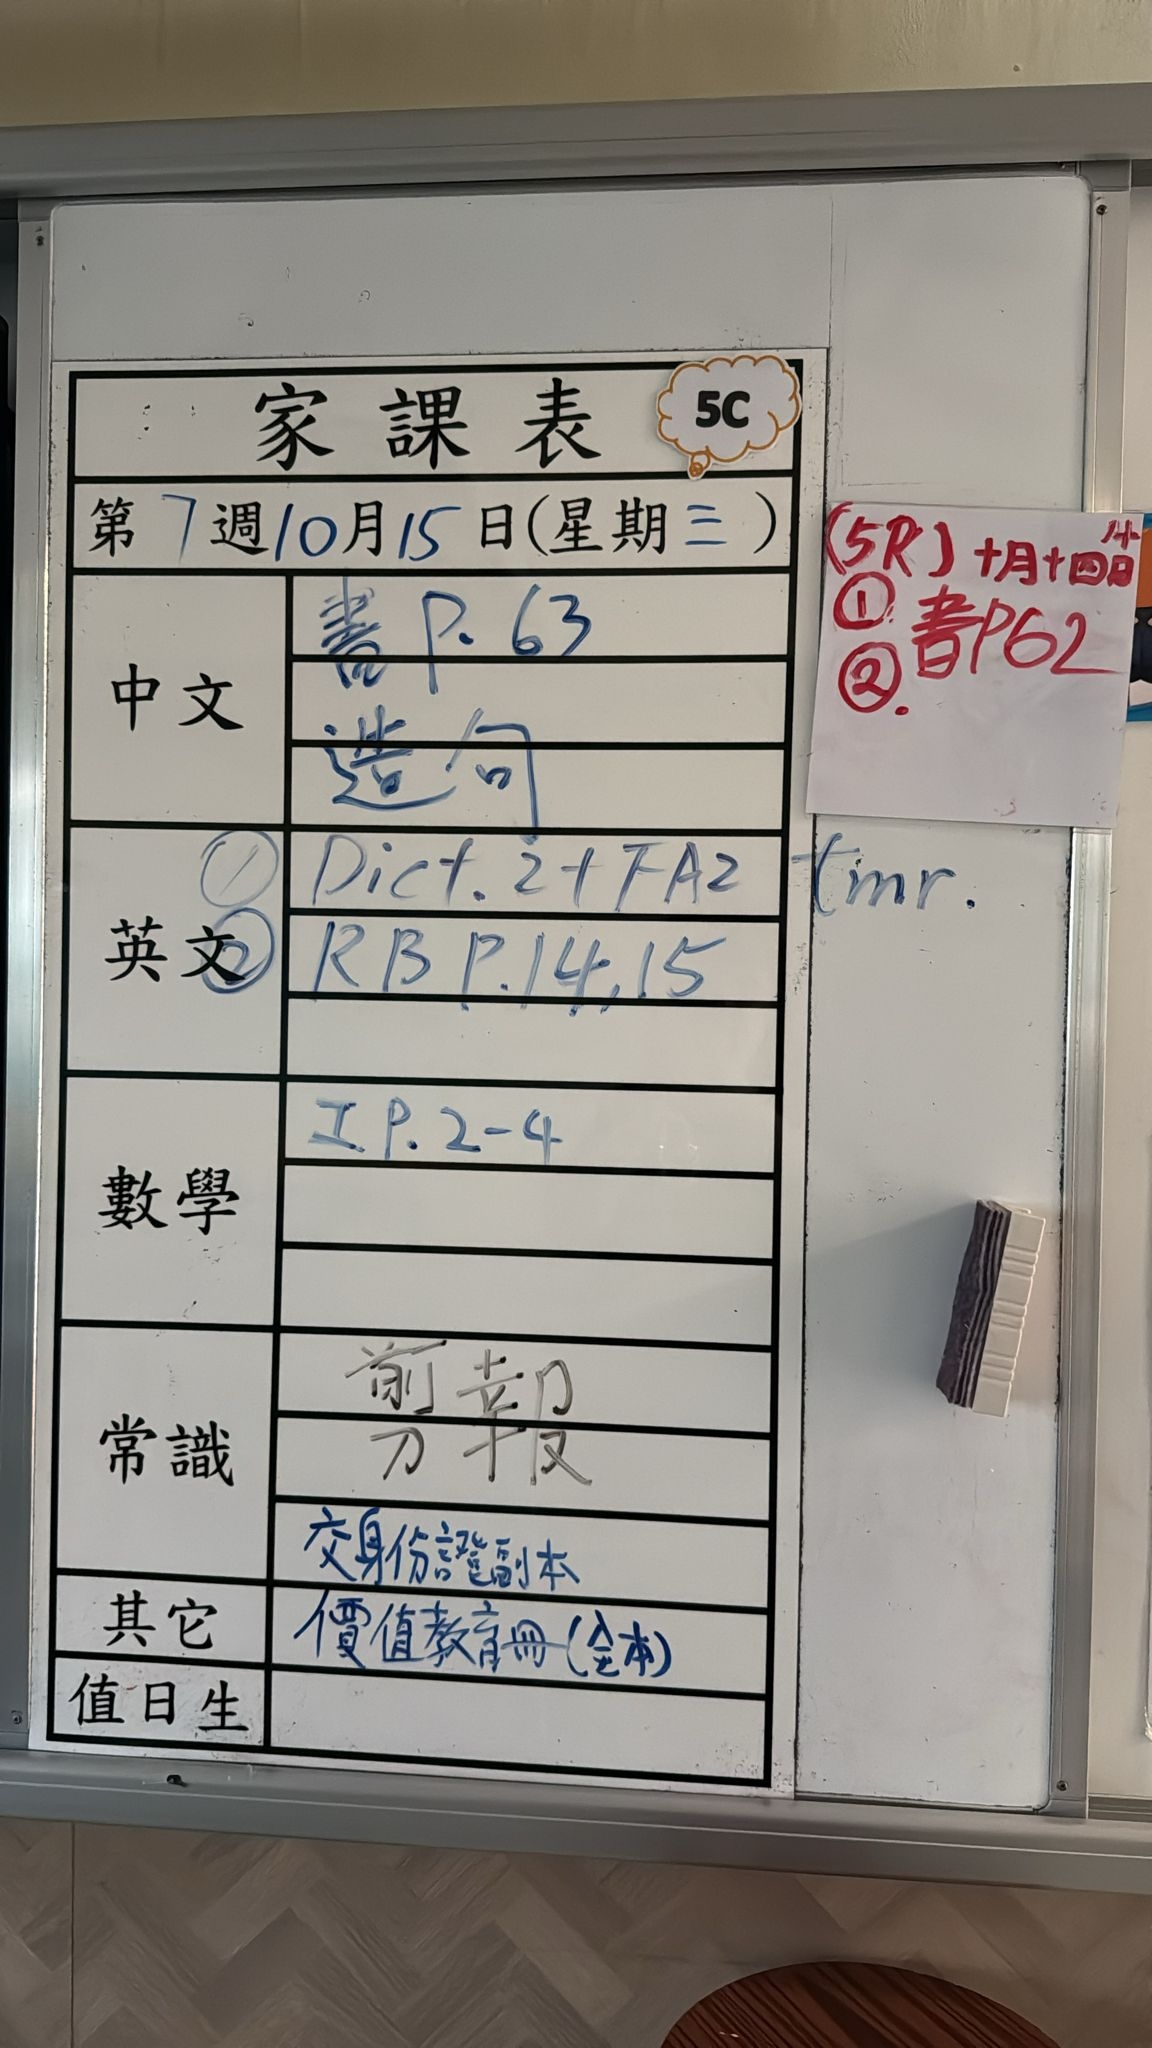 家課表
5C
第7週10月15日(星期三)
中文
書P.63
造句
英文
① Dict. 2 + FA2 tmr.
② RB P.14,15
數學
工P.2-4
常識
剪報
交身份證副本
其它
價值教育冊(全本)
值日生
(5R) 十月十四日
① 書P62
②.